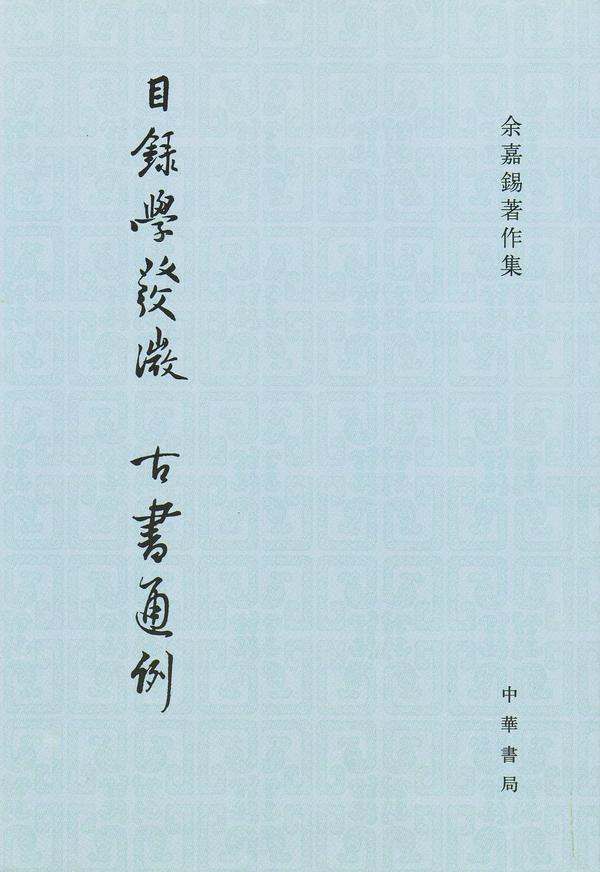 余嘉錫著作集
目錄學發微 古書通例
中華書局